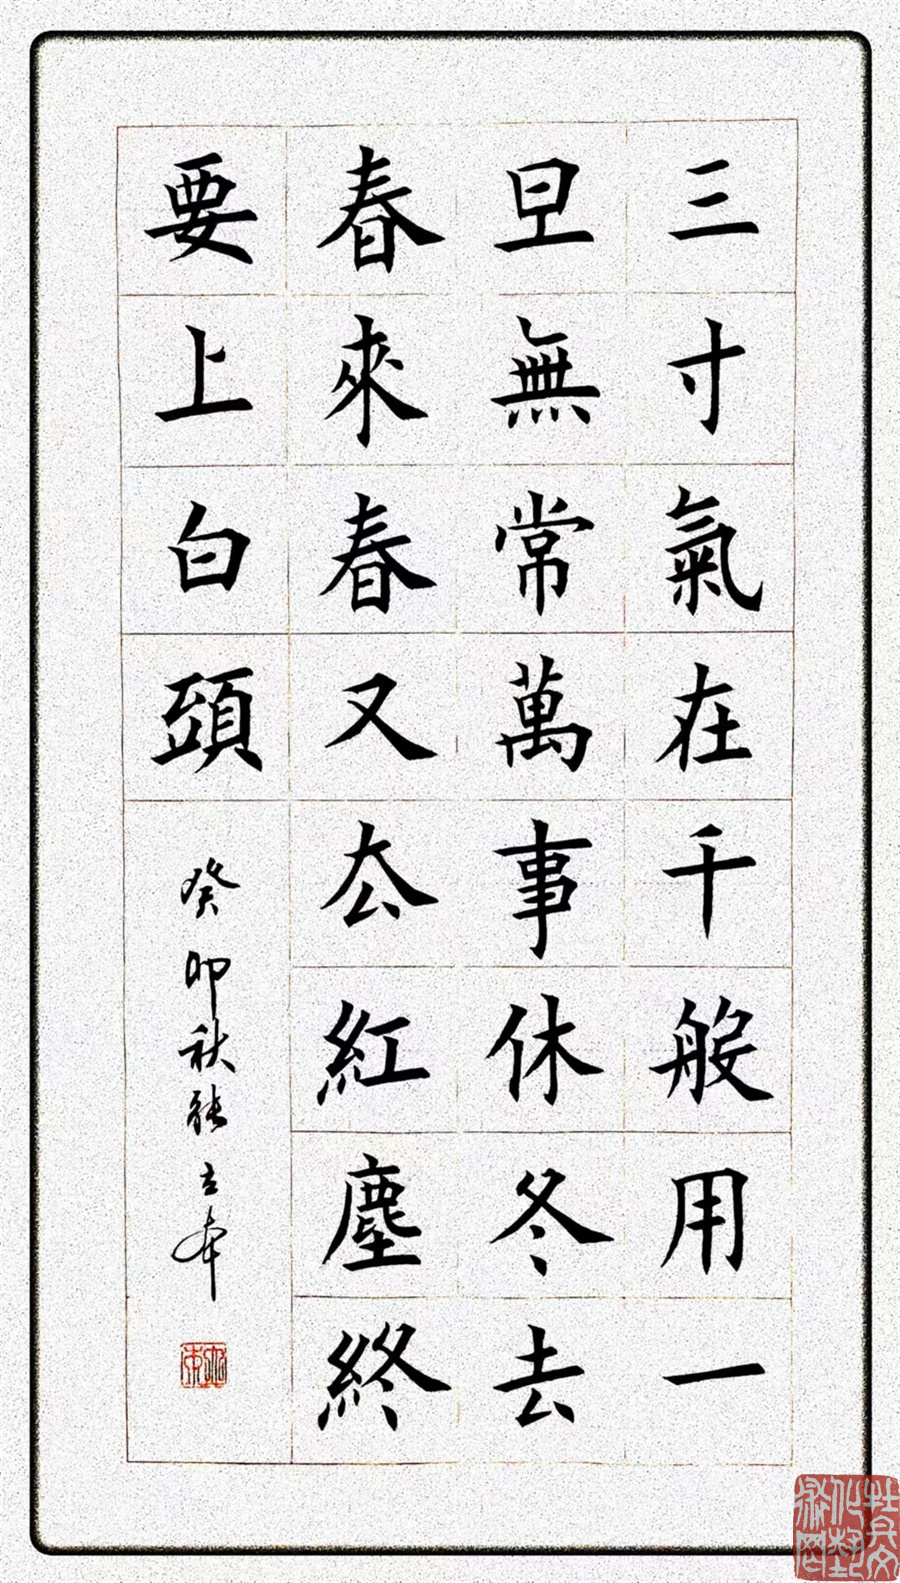 三寸氣在千般用一
旦無常萬事休冬去
春來春又厺紅塵終
要上白頭
癸卯秋張立本